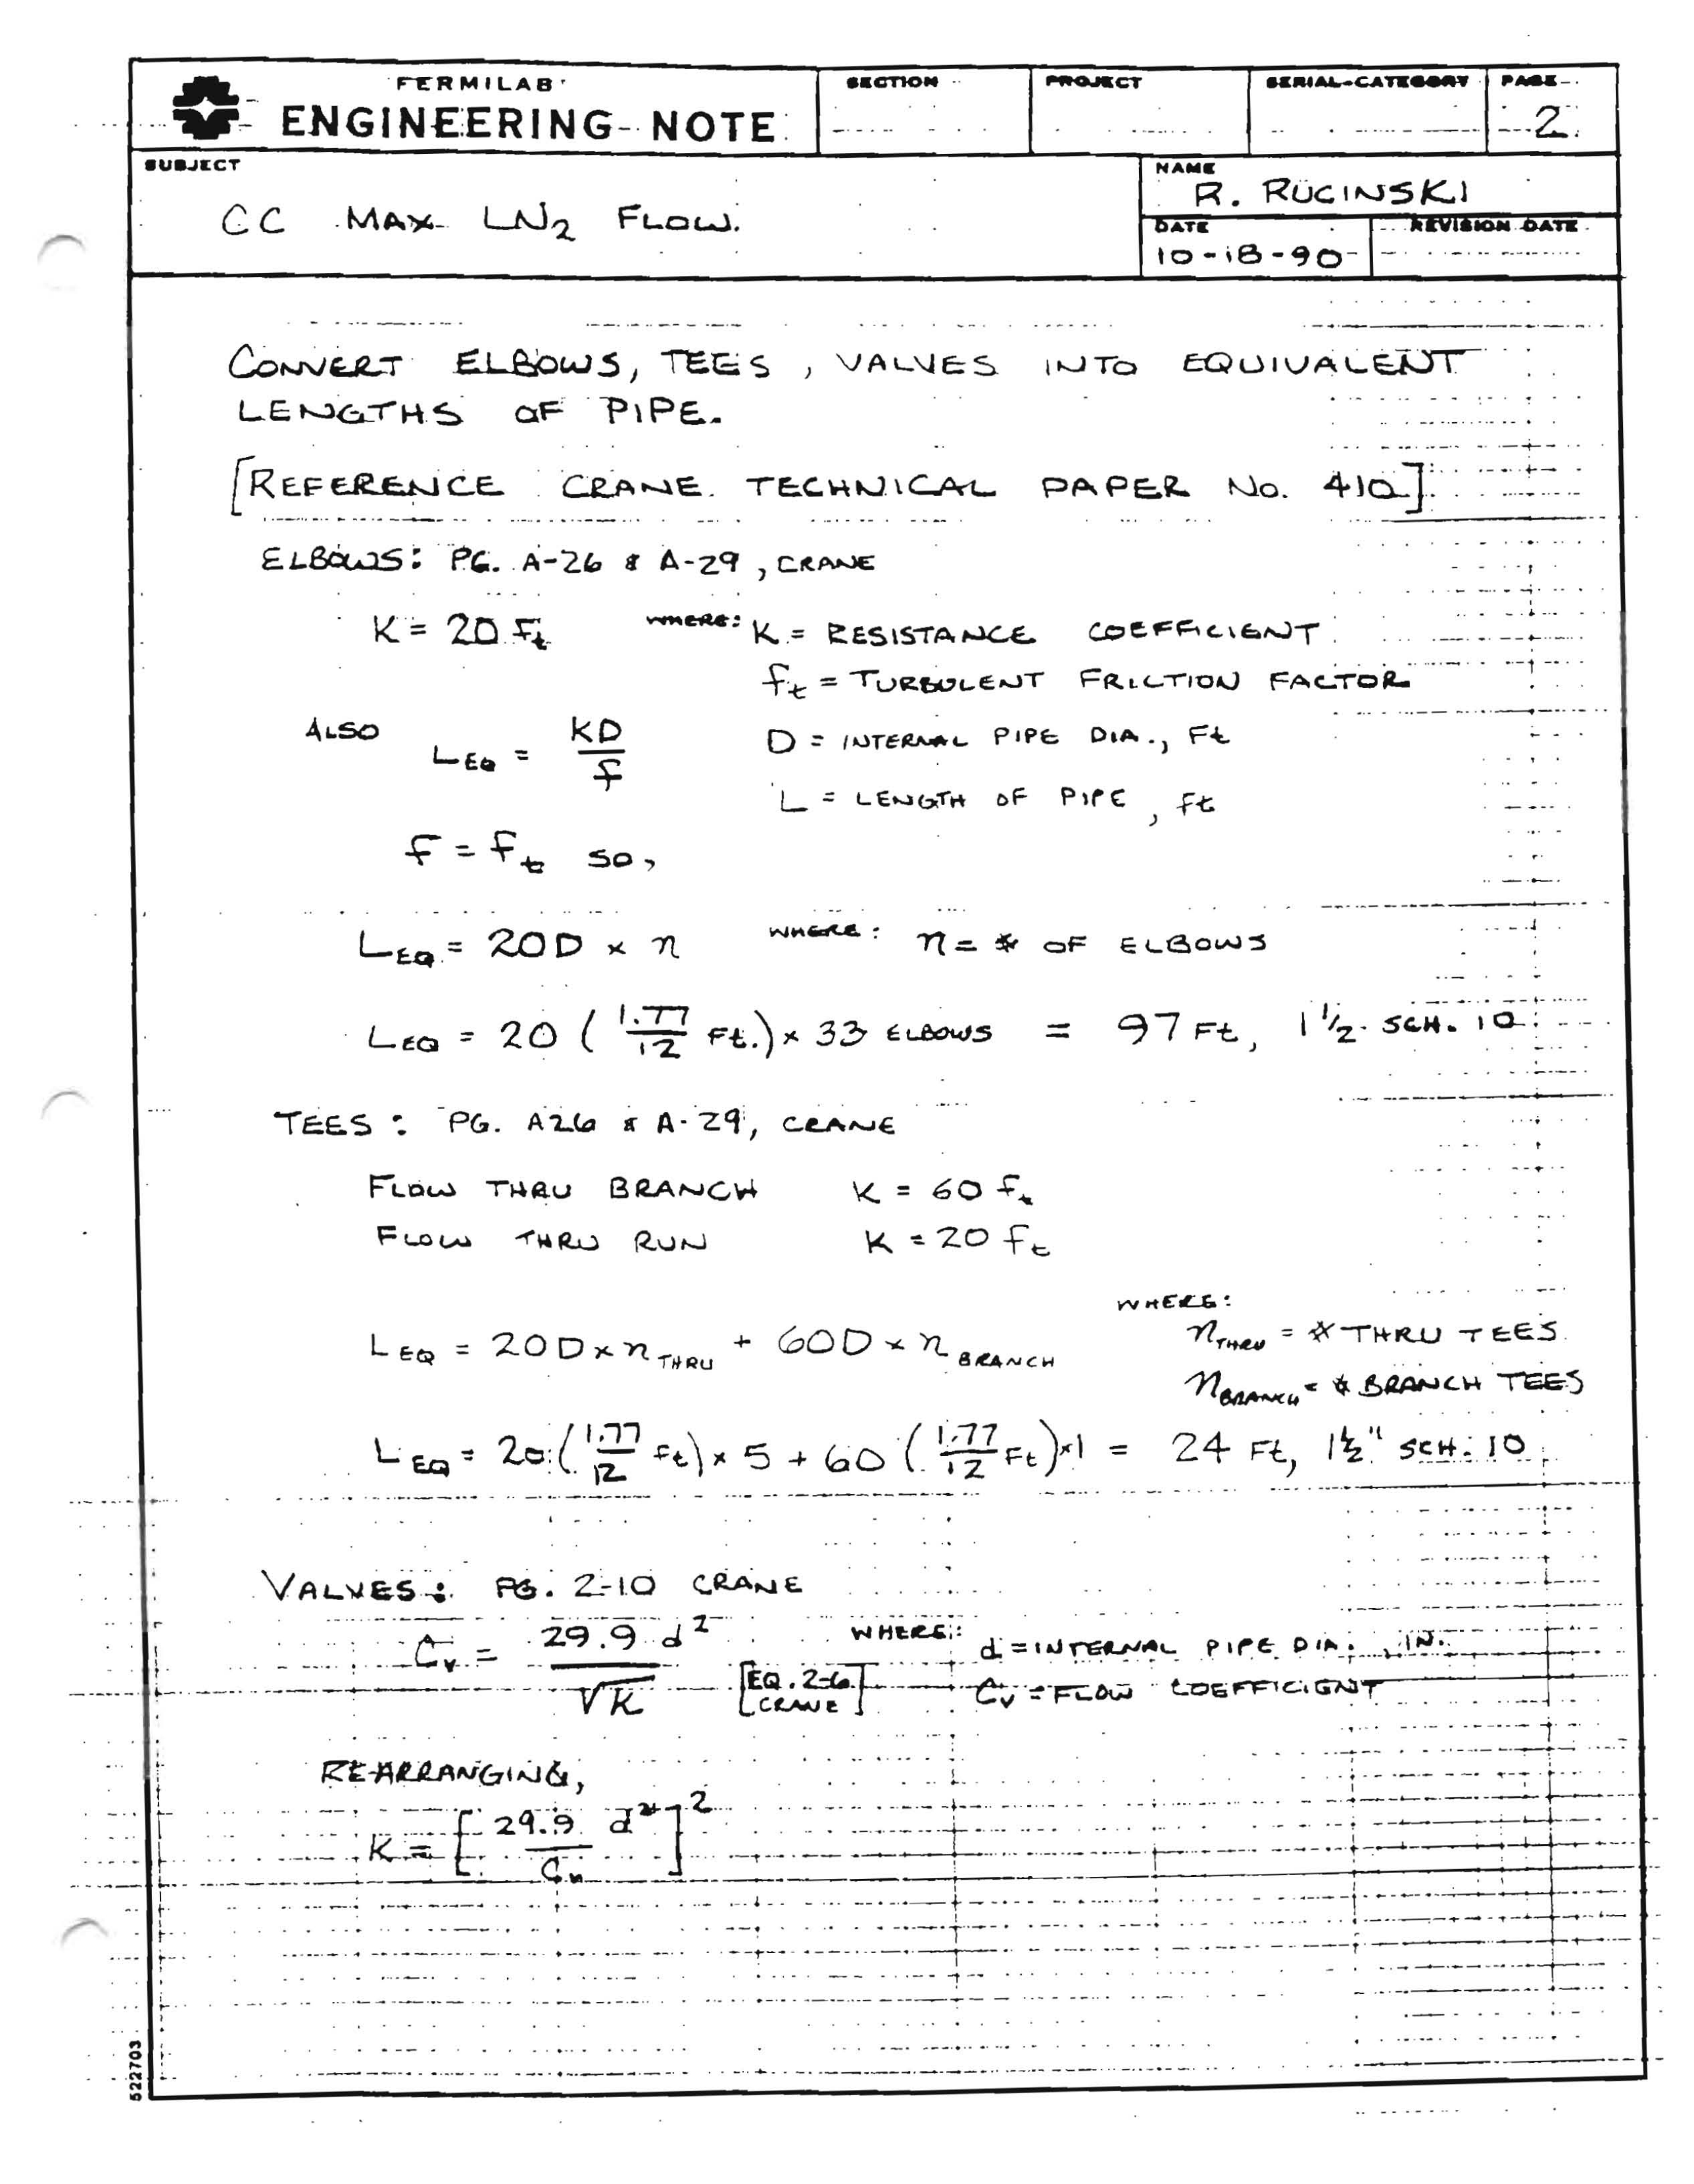 FERMILAB
ENGINEERING NOTE
SECTION
PROJECT
SERIAL-CATEGORY
PAGE
2
SUBJECT
CC MAX LN2 FLOW.
NAME
R. RUCINSKI
DATE
10-18-90
REVISION DATE
CONVERT ELBOWS, TEES, VALVES INTO EQUIVALENT
LENGTHS OF PIPE.
[REFERENCE CRANE TECHNICAL PAPER No. 410]
ELBOWS: PG. A-26 & A-29, CRANE
K = 20 ft WHERE: K = RESISTANCE COEFFICIENT
ft = TURBULENT FRICTION FACTOR
ALSO LEQ = KD/f D = INTERNAL PIPE DIA., Ft
L = LENGTH OF PIPE, ft
f = ft so,
LEQ = 20D x n WHERE: n = # OF ELBOWS
LEQ = 20 (1.77/12 Ft.) x 33 ELBOWS = 97 Ft, 1 1/2 SCH. 10
TEES: PG. A26 & A-29, CRANE
FLOW THRU BRANCH K = 60 ft
FLOW THRU RUN K = 20 ft
WHERE:
LEQ = 20D x nTHRU + 60D x nBRANCH nTHRU = # THRU TEES
nBRANCH = # BRANCH TEES
LEQ = 20 (1.77/12 ft) x 5 + 60 (1.77/12 Ft) x 1 = 24 Ft, 1½" SCH. 10
VALVES: PG. 2-10 CRANE
Cv = 29.9 d²/√K [EQ. 2-6 CRANE] WHERE: d = INTERNAL PIPE DIA., IN.
Cv = FLOW COEFFICIENT
REARRANGING,
K = [29.9 d²/Cv]²
522703